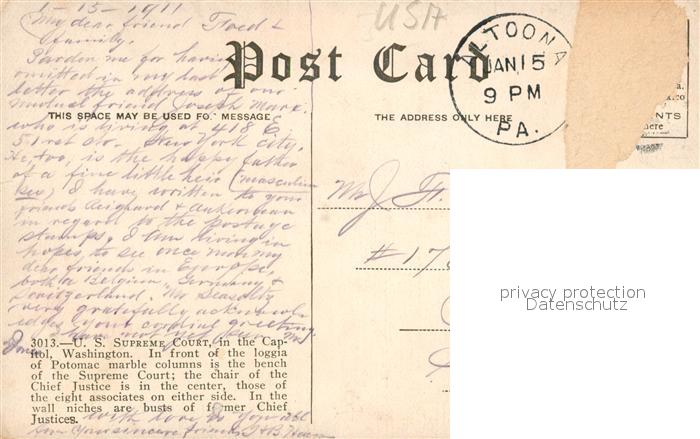 1-15-1911
My dear friend Fred &
family.
Pardon me for having
omitted in my last
letter the address of our
mutual friend Joseph Marx.
who is living at 418 E
51rst str. New York City.
He, too, is the happy father
of a fine little heir (masculin
sex) I have written to your
friends &
in regard to the postage
stamps. I am living in
hopes to see once more my
dear friends in Europe,
both in Belgium, Germany &
Switzerland. Mr
very gratefully acknowl-
edges your cordial greeting
USA
Post Card
THIS SPACE MAY BE USED FOR MESSAGE
THE ADDRESS ONLY HERE
ALTOONA
JAN 15
9 PM
PA.
Mr J.
# 17
3013.—U. S. SUPREME COURT, in the Cap-
itol, Washington. In front of the loggia
of Potomac marble columns is the bench
of the Supreme Court; the chair of the
Chief Justice is in the center, those of
the eight associates on either side. In the
wall niches are busts of former Chief
Justices.
with love to you all
your sincere friends
privacy protection
Datenschutz